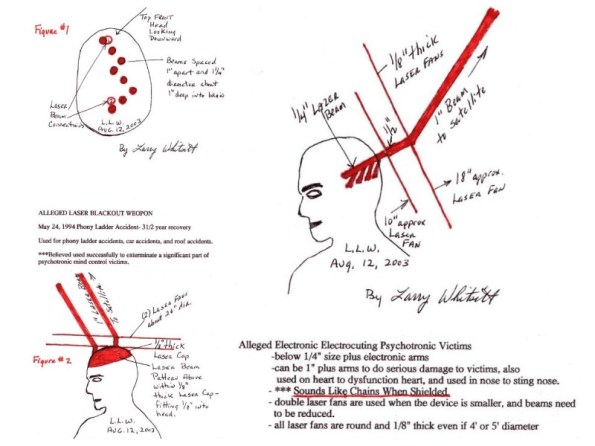 Figure #1
Top Front
Head
Looking
Downward
Beams Spaced
1" apart and 1/4"
diameter about
1" deep into brain
Laser
Beam
Connections
L.L.W.
AUG. 12, 2003
By Larry Whitsitt
ALLEGED LASER BLACKOUT WEOPON
May 24, 1994 Phony Ladder Accident- 31/2 year recovery
Used for phony ladder accidents, car accidents, and roof accidents.
***Believed used successfully to exterminate a significant part of
psychotronic mind control victims.
(2) Laser Fans
about 36" dia.
1/8" thick
Laser Cap
Laser Beam
Pattern Above
within 1/8"
thick Laser Cap-
Fitting 1/8" into
head.
Figure #2
L.L.W.
AUG 12, 2003
1/8" thick
LASER FANS
1/4" LAZER
BEAM
1/2"
1" BEAM
to satellite
18" approx.
LASER FAN
10" approx
LASER
FAN
L.L.W.
AUG. 12, 2003
By Larry Whitsitt
Alleged Electronic Electrocuting Psychotronic Victims
-below 1/4" size plus electronic arms
-can be 1" plus arms to do serious damage to victims, also
used on heart to dysfunction heart, and used in nose to sting nose.
- *** Sounds Like Chains When Shielded
- double laser fans are used when the device is smaller, and beams need
to be reduced.
- all laser fans are round and 1/8" thick even if 4' or 5' diameter